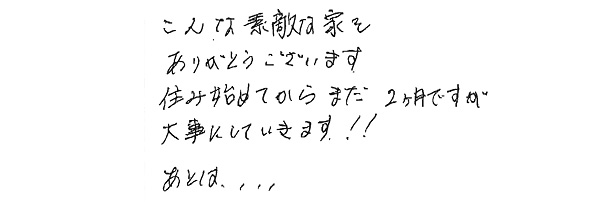 こんな素敵な家を
ありがとうございます
住み始めてからまだ 2ヶ月ですが
大事にしていきます!!
あとは、、、